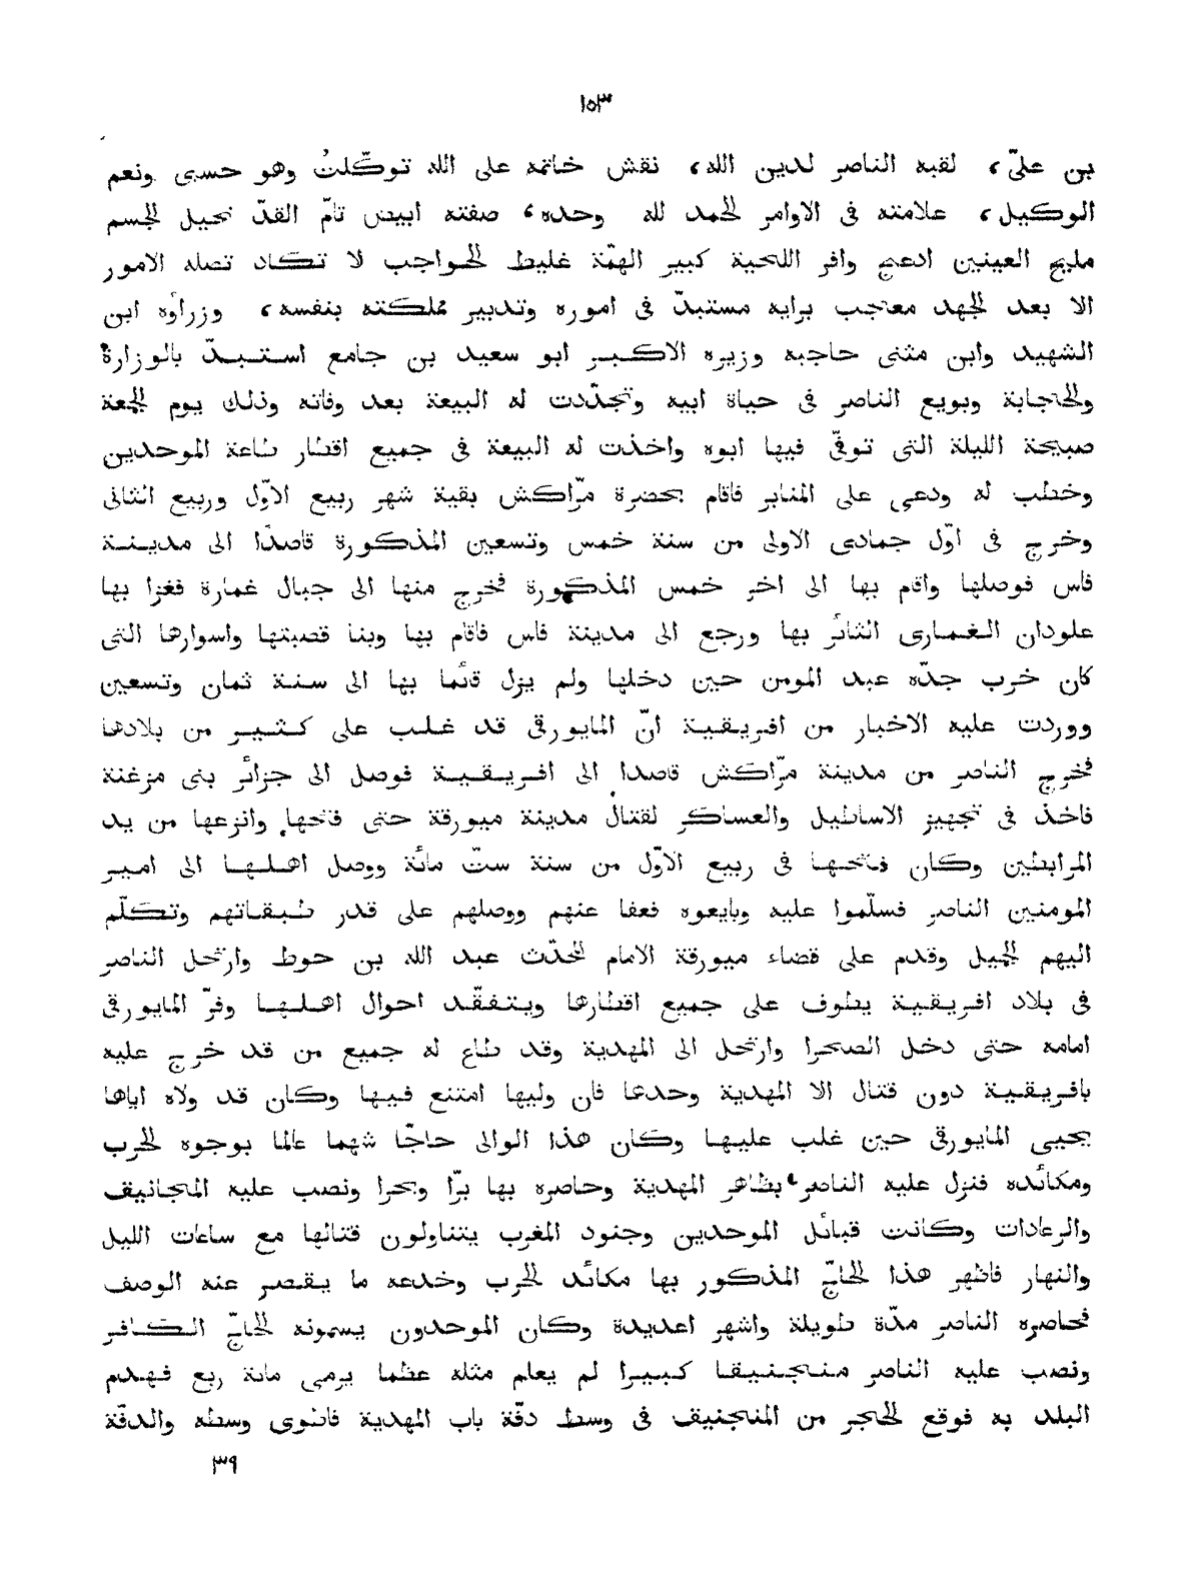 ١٥٣
بن علىّ، لقبه الناصر لدين الله، نقش خاتمه على الله توكّلتُ وهو حسبى ونعم
الوكيل، علامته فى الاوامر الحمد لله وحده، صفته ابيض تامّ القدّ نحيل الجسم
مليح العينين ادعج وافر اللحية كبير الهمّة غليظ الحواجب لا تكاد تصله الامور
الا بعد الجهد معتجب برايه مستبدّ فى اموره وتدبير مملكته بنفسه، وزراؤه ابن
الشهيد وابن مثنى حاجبه وزيره الاكبر ابو سعيد بن جامع استبدّ بالوزارة
والحجابة وبويع الناصر فى حياة ابيه وتجدّدت له البيعة بعد وفاته وذلك يوم الجمعة
صبيحة الليلة التى توفّى فيها ابوه واخذت له البيعة فى جميع اقطار طاعة الموحدين
وخطب له ودعى على المنابر فاقام بحضرة مرّاكش بقية شهر ربيع الاوّل وربيع الثانى
وخرج فى اوّل جمادى الاولى من سنة خمس وتسعين المذكورة قاصدًا الى مدينة
فاس فوصلها واقام بها الى اخر خمس المذكورة فخرج منها الى جبال غمارة فغزا بها
علودان الغمارى الثائر بها ورجع الى مدينة فاس فاقام بها وبنا قصبتها واسوارها التى
كان خرب جدّه عبد المومن حين دخلها ولم يزل قائما بها الى سنة ثمان وتسعين
ووردت عليه الاخبار من افريقية انّ المايورقى قد غلب على كثير من بلادها
فخرج الناصر من مدينة مرّاكش قاصدا الى افريقية فوصل الى جزائر بنى مزغنة
فاخذ فى تجهيز الاساطيل والعساكر لقتال مدينة ميورقة حتى فتحها وانزعها من يد
المرابطين وكان فتحها فى ربيع الاوّل من سنة ستّ مائة ووصل اهلها الى امير
المومنين الناصر فسلّموا عليه وبايعوه فعفا عنهم ووصلهم على قدر طبقاتهم وتكلّم
اليهم الجميل وقدم على قضاء ميورقة الامام المحدّث عبد الله بن حوط وارتحل الناصر
فى بلاد افريقية يطوف على جميع اقطارها ويتفقّد احوال اهلها وفرّ المايورقى
امامه حتى دخل الصحرا وارتحل الى المهدية وقد طاع له جميع من قد خرج عليه
بافريقية دون قتال الا المهدية وحدها فان وليها امتنع فيها وكان قد ولاه اياها
يحيى المايورقى حين غلب عليها وكان هذا الوالى حاجّا شهما عالما بوجوه الحرب
ومكائده فنزل عليه الناصر بظاهر المهدية وحاصره بها برّا وبحرا ونصب عليه المجانيق
والرعادات وكانت قبائل الموحدين وجنود المغرب يتناولون قتالها مع ساعات الليل
والنهار فاظهر هذا الحاجّ المذكور بها مكائد الحرب وخدعه ما يقصر عنه الوصف
فحاصره الناصر مدّة طويلة واشهر اعديدة وكان الموحدون يسمونه الحاجّ الكافر
ونصب عليه الناصر منجنيقا كبيرا لم يعلم مثله عظما يرمى مائة ربع فهدم
البلد به فوقع الحجر من المنجنيق فى وسط دفّة باب المهدية فانلوى وسطه والدفّة
٣٩